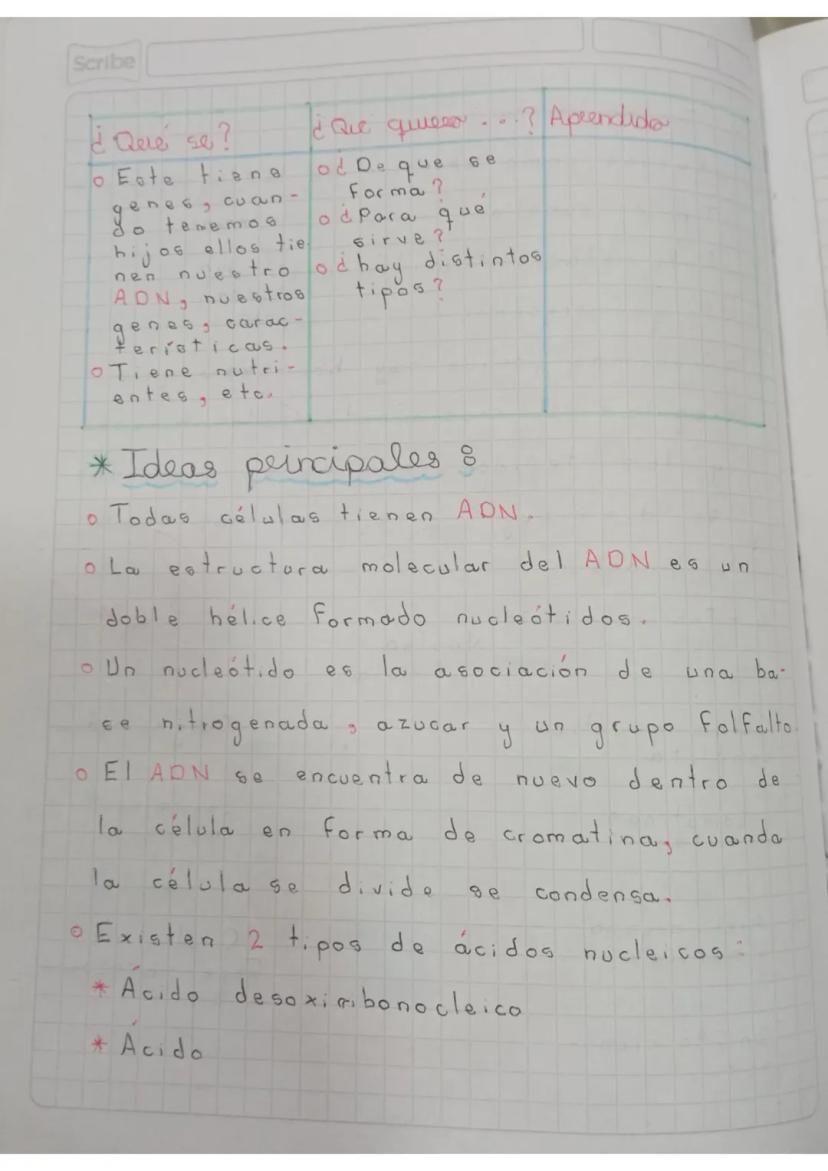 Scribe
¿Qué se?
¿Que quiero...?
Aprendido
o Este tiene
genes, cuan-
do tenemos
hijos ellos tie
nen nuestro
ADN, nuestros
genes, carac-
terísticas.
o Tiene nutri-
entes, etc.
o ¿De que se
forma?
o ¿Para qué
sirve?
o ¿hay distintos
tipos?
* Ideas principales:
o Todas células tienen ADN.
o La estructura molecular del ADN es un
doble hélice formado nucleótidos.
o Un nucleótido es la asociación de una ba-
se nitrogenada, azucar y un grupo folfalto.
o El ADN se encuentra de nuevo dentro de
la célula en forma de cromatina, cuando
la célula se divide se condensa.
o Existen 2 tipos de ácidos nucleicos:
* Ácido desoxirribonocleico
* Ácido